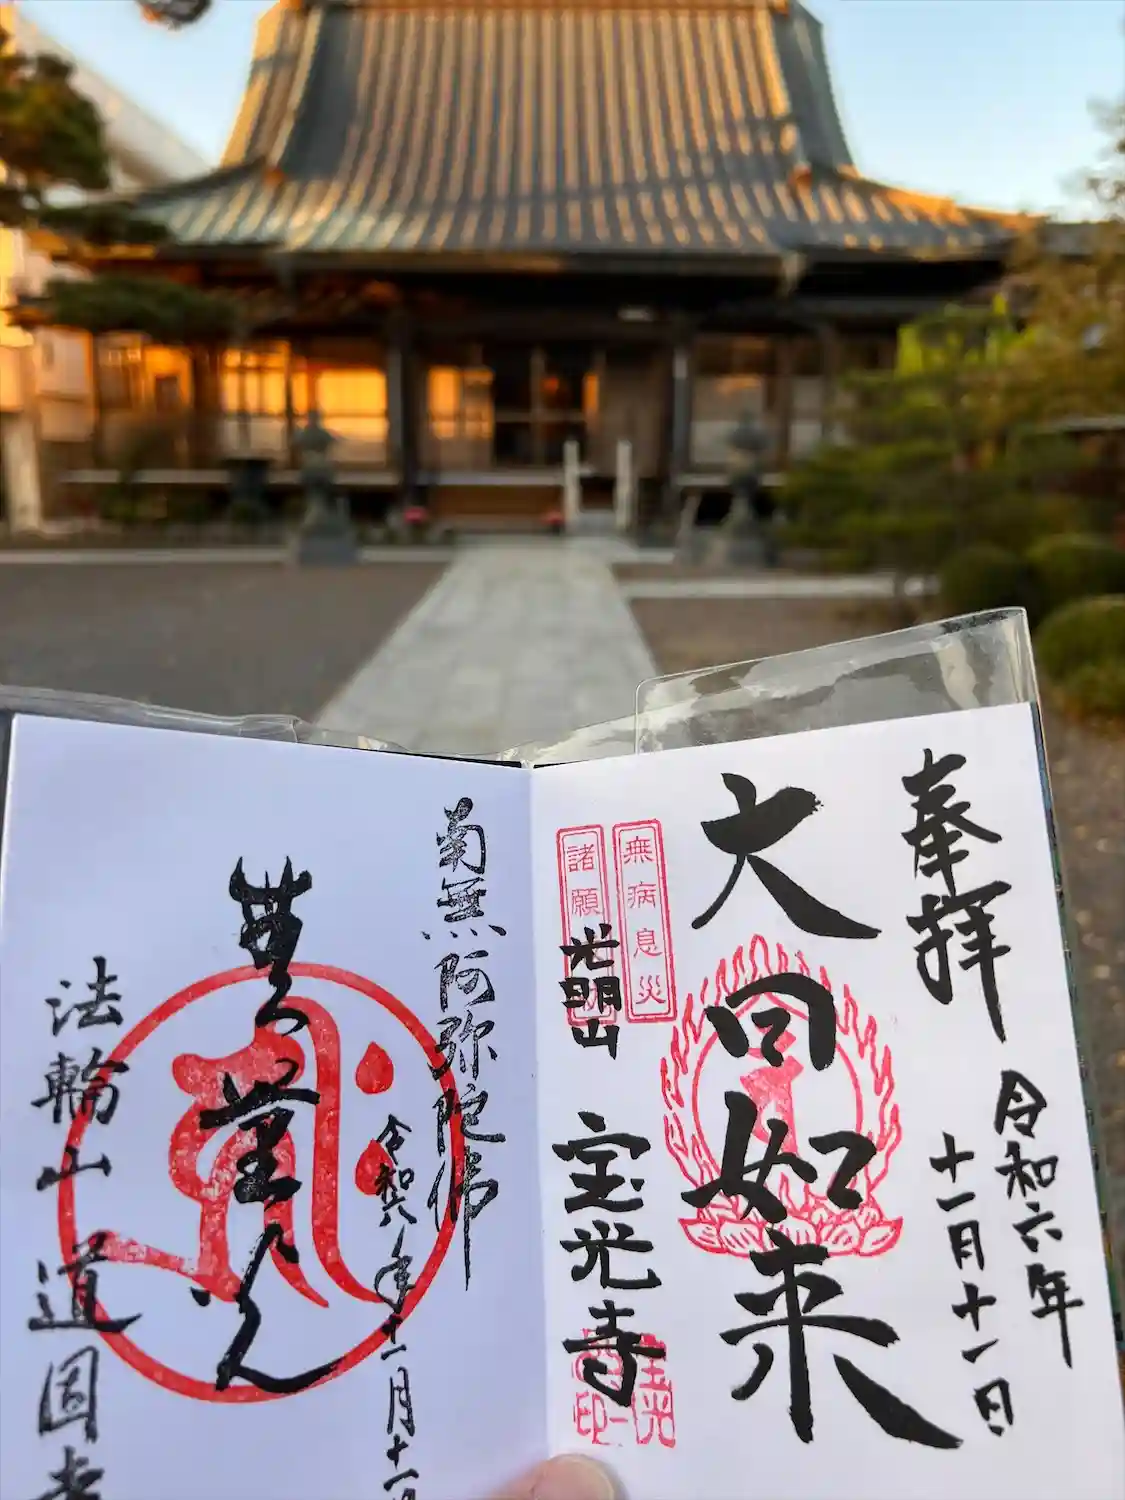 奉拝
令和六年
十一月十一日
大日如来
無病息災
諸願
光明山
宝光寺
南無阿弥陀佛
令和六年十一月十一日
法輪山 道圓寺